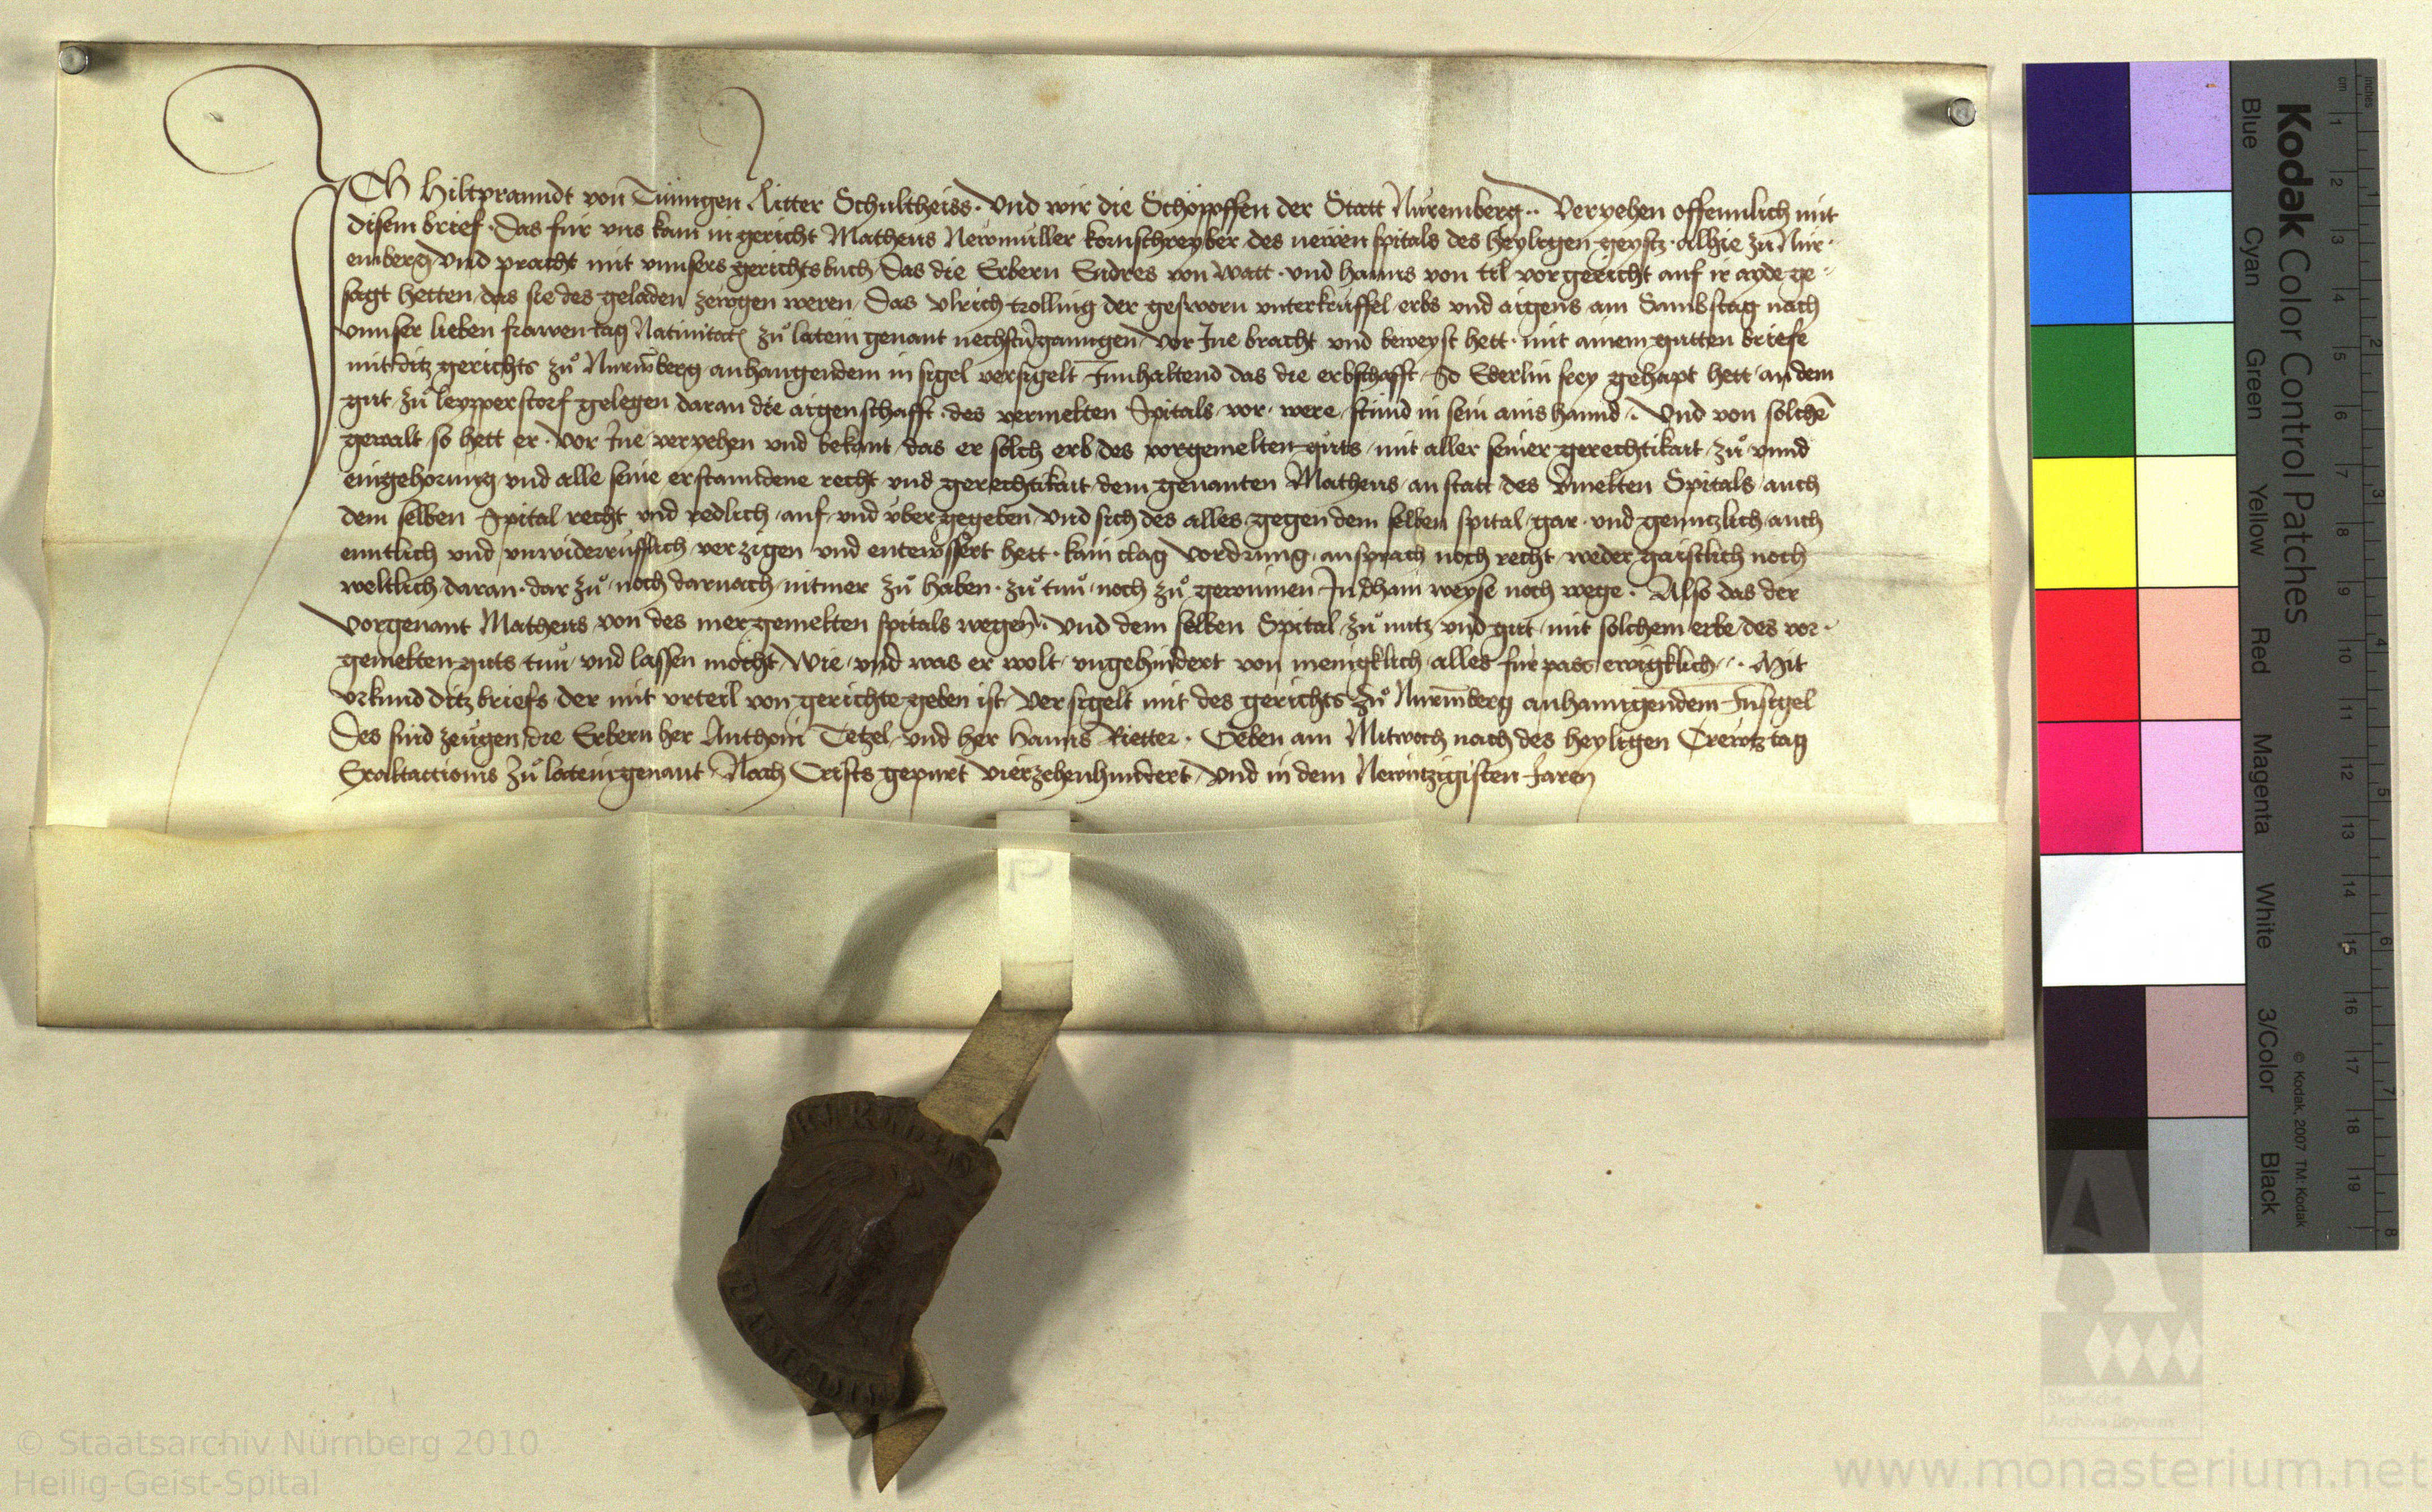 ICH Hiltpranndt von Tüngen Ritter Schultheiss. Und wir die Schopffen der Statt Nuremberg.. Veryehen offennlich mit
disem brief. Das für uns kam in gericht Matheus Newmuller kornschreyber des newen spitals des heyligen geysts alhie zu Nür-
emberg und pracht mit unnsers gerichtsbuch das die Erbern Endres von Watt und Hanns von til vor gericht auf ir ayde ge-
sagt hetten das sie des geladen zewgen weren Das Ulrich trolling der gesworn unterkeuffel erbs und aigens am Sambstag nach
unnser lieben frawen tag Nativitatis zu latein genant nechstvergangen vor Ine bracht und beweyst hett mit ainem gutten briefe
mit ditz gerichts zu Nuremberg anhangendem insigel versigelt Innhaltend das die erbschafft So Ederlin frey gehapt hett an dem
gut zu leypperstorf gelegen daran die aigenschafft des vermelten Spitals vor were stünd in sein ains hannd. Und von solchem
gewalt so hett er vor Ine veryehen und bekant das er solch erb des vorgemelten guts mit aller seiner gerechtikait zu unnd
eingehorung und alle seine erstanndene recht und gerechtikait dem genanten Matheus an statt des vermelten Spitals auch
dem selben Spital recht und redlich auf und übergegeben und sich des alles gegen dem selben spital gar und genntzlich auch
enntlich und unwiderrüfflich verzigen und entewssert hett. kain clag vordrung ansprach noch recht weder gaistlich noch
weltlich daran dar zu noch darnach nimer zu haben zu tun noch zu gewinnen In dhain weyse noch wege. Also das der
vorgenant Matheus von des mergemelten spitals wegen. Und dem selben Spital zu nutz und gut mit solchem erbe des vor-
gemelten guts tun und lassen mocht Wie und was er wolt ungehindert von menigklich alles fürpass ewigklich. Mit
urkund ditz briefs der mit urteil von gerichte geben ist versigelt mit des gerichts zu Nuremberg anhanngendem Insigel
Des sind zeugen die Erbern her Anthoni Tetzel und her Hanns Rietter. Geben am Mitwoch nach des heyligen Crewtz tag
Exaltacionis zu latein genant Nach Crists gepurt vierzehenhundert und in dem Newntzigisten Jaren
Kodak Color Control Patches
Blue Cyan Green Yellow Red Magenta White 3/Color Black
© Kodak, 2007 TM: Kodak
inches 1 2 3 4 5 6 7 8
cm 1 2 3 4 5 6 7 8 9 10 11 12 13 14 15 16 17 18 19
© Staatsarchiv Nürnberg 2010
Heilig-Geist-Spital
Staatliche
Archive Bayerns
www.monasterium.net